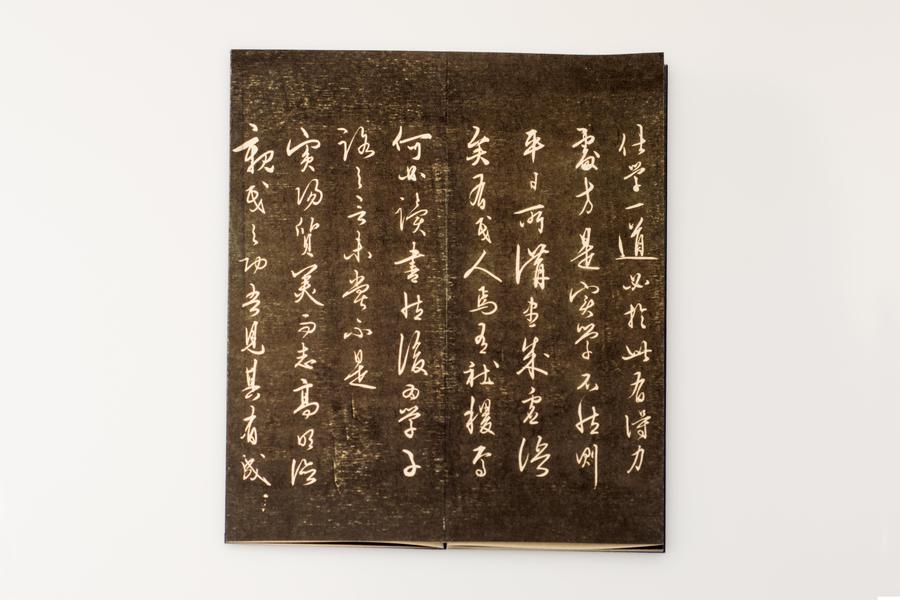 仕學一道必於此有得力
處方是實學不然則
平日所講盡成虛語
矣有民人焉有社稷焉
何必讀書然後為學子
路之言未嘗不是
賓陽質美而志高明德
親民之功吾見其有成